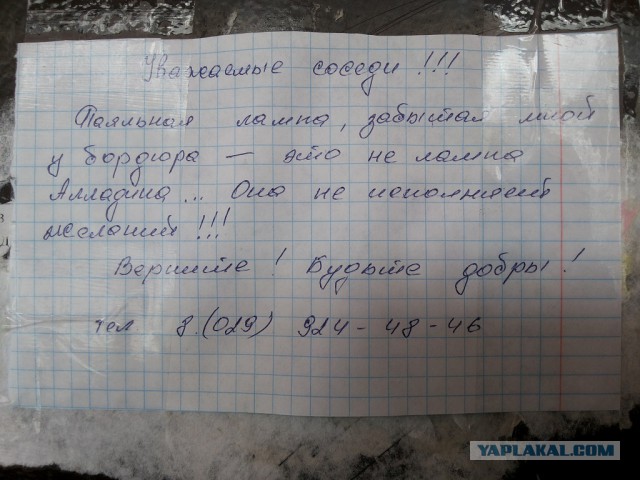 Уважаемые соседи!!!
Паяльная лампа, забытая мной
у бордюра — это не лампа
Алладина... Она не исполняет
желаний!!!
Верните! Будьте добры!
тел 8.(029) 924-48-46
YAPLAKAL.COM